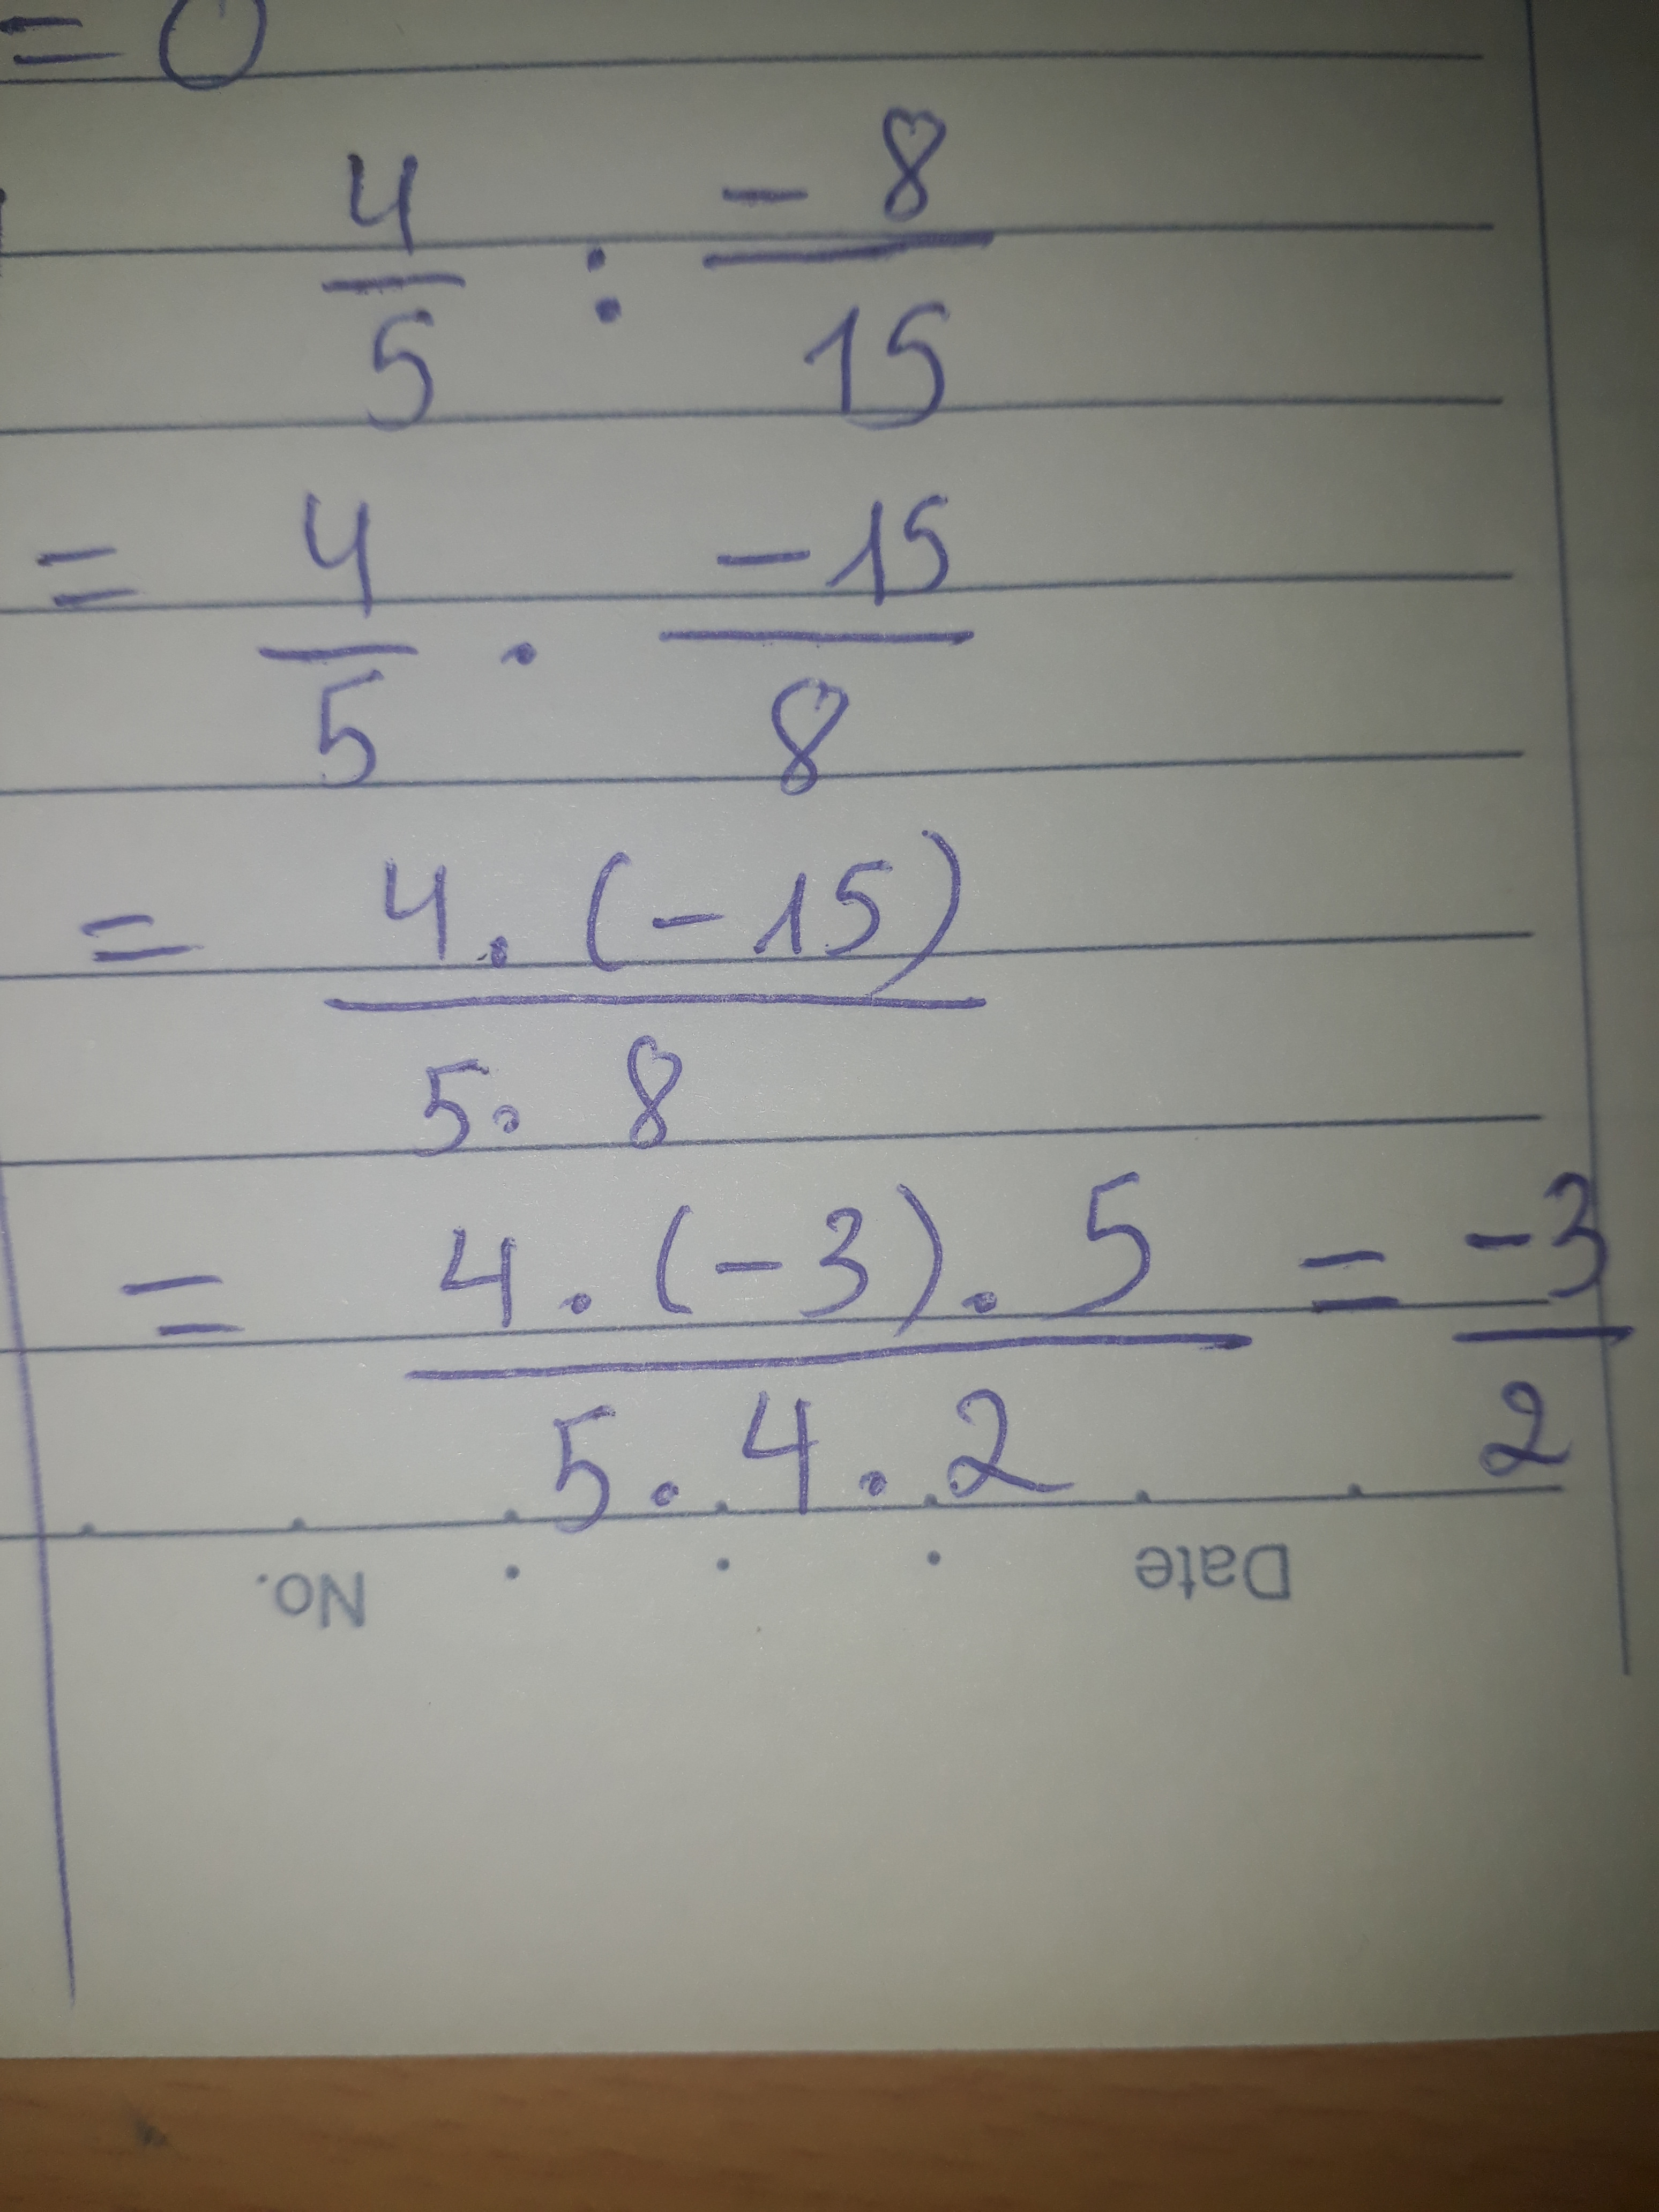 = 0
4/5 : -8/15
= 4/5 . -15/8
= 4 . (-15) / 5 . 8
= 4 . (-3) . 5 / 5 . 4 . 2 = -3/2
No. Date